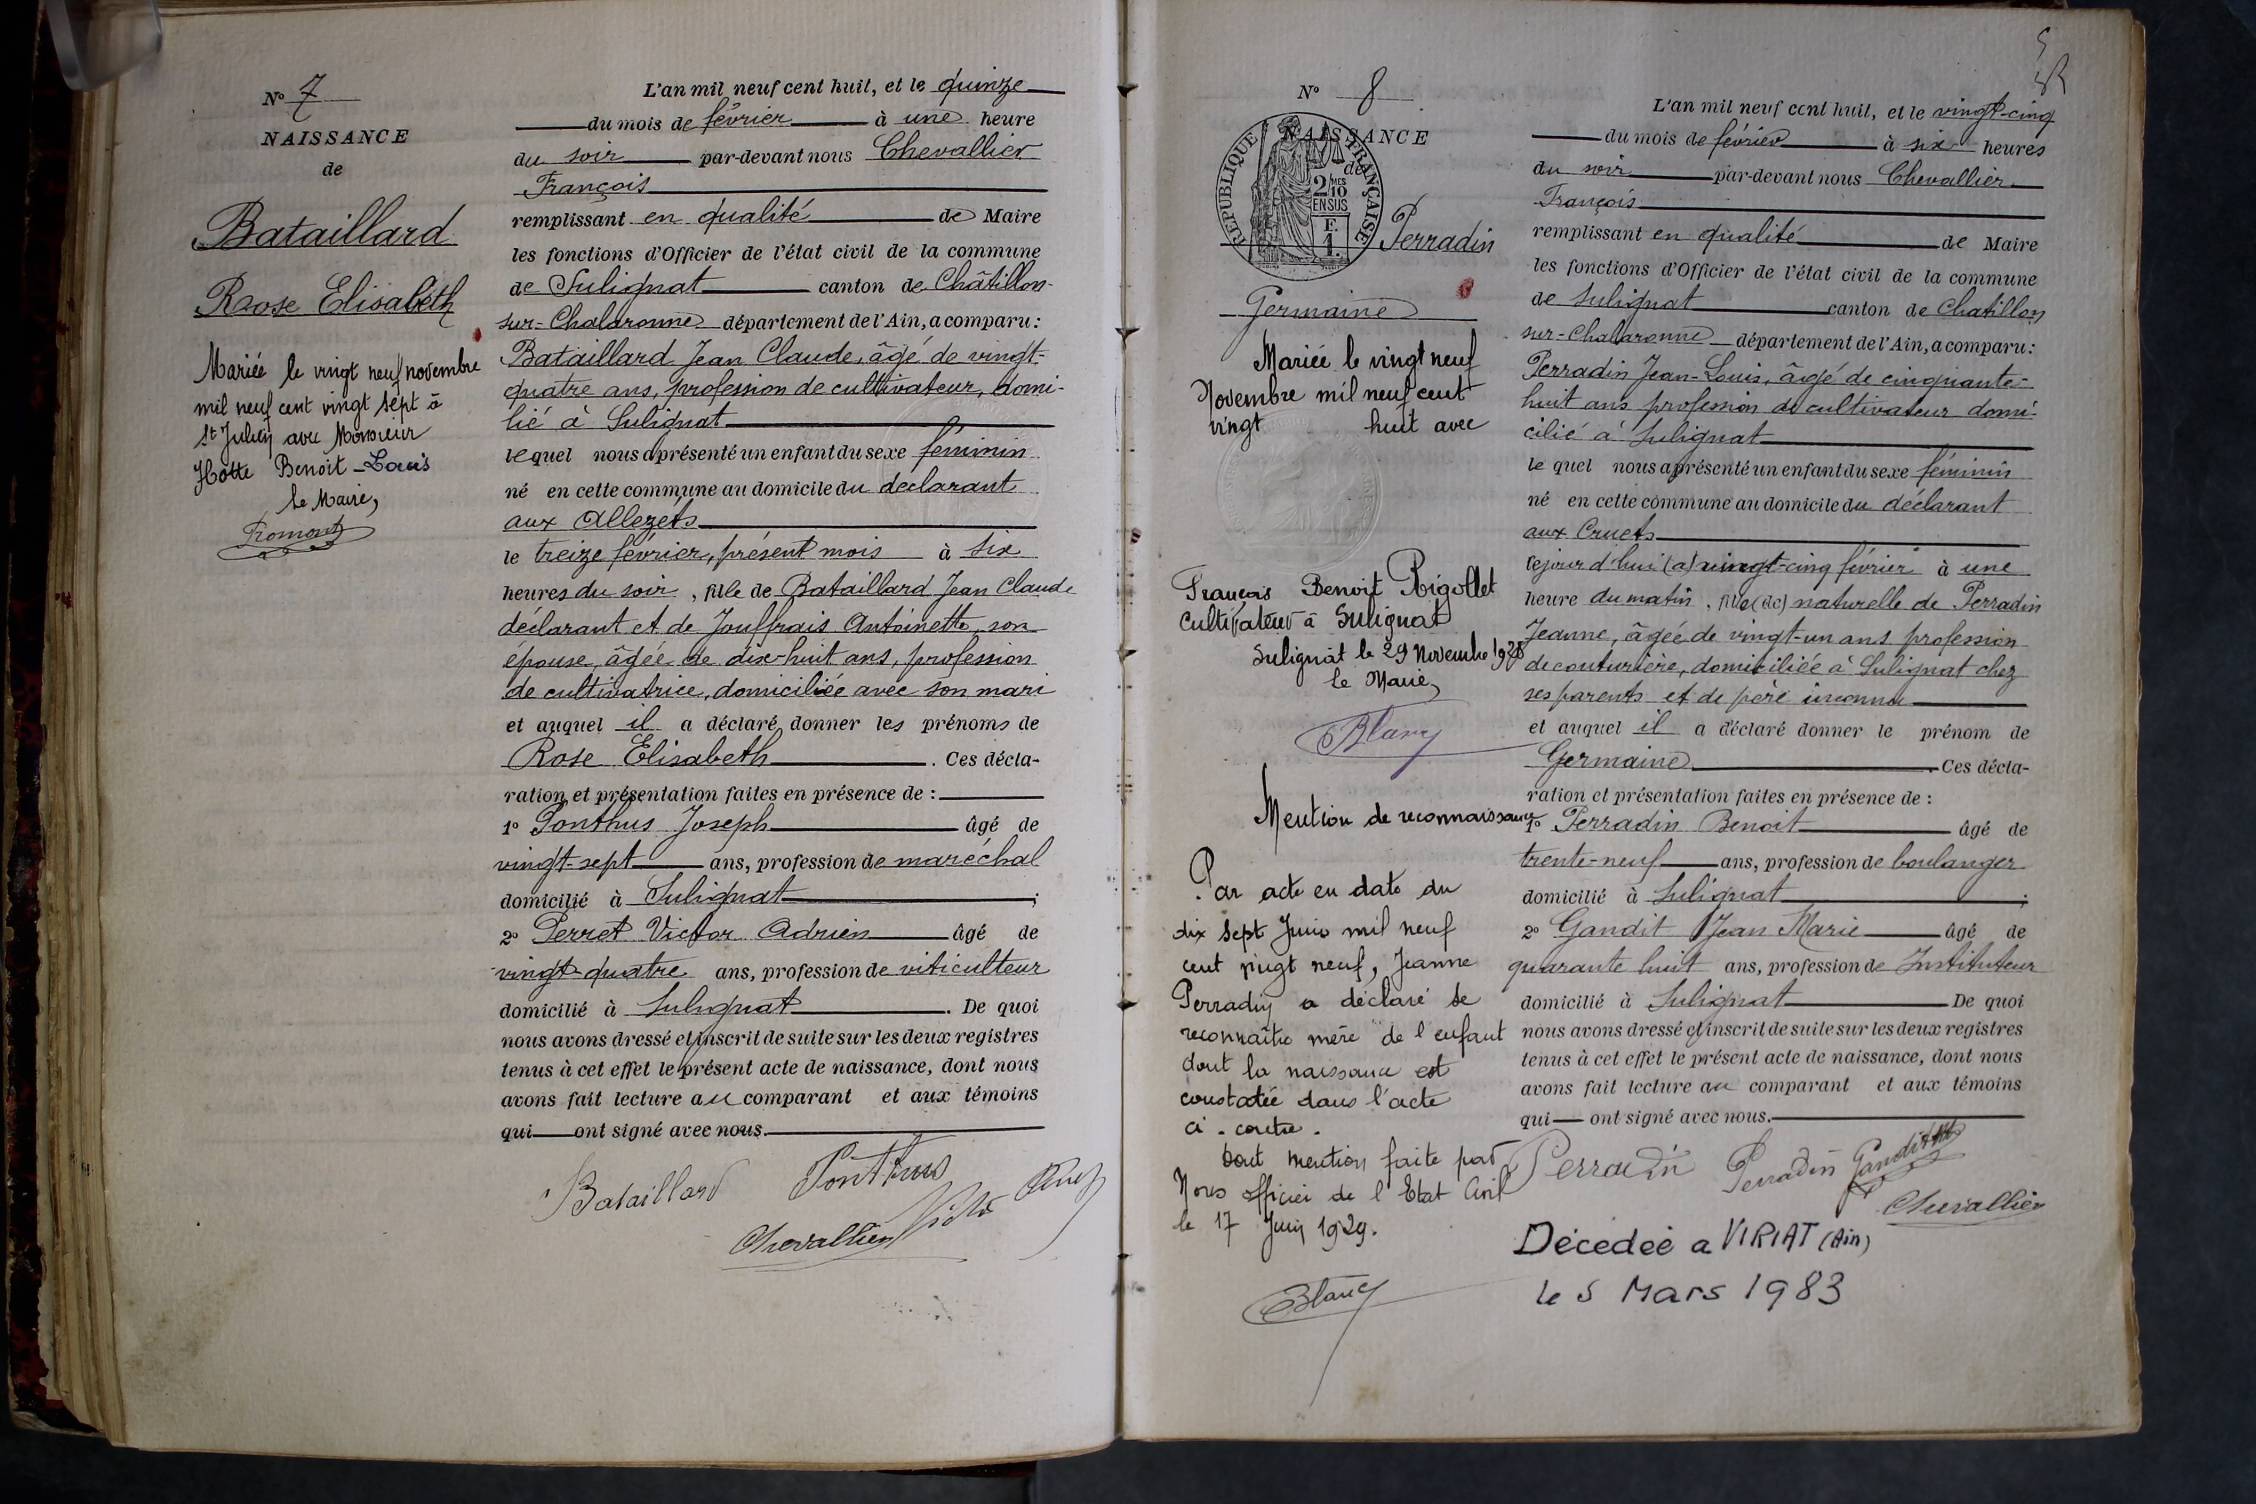 N° 7
NAISSANCE
de
Bataillard
Rose Elisabeth
Mariée le vingt neuf novembre
mil neuf cent vingt sept à
St Julien avec Monsieur
Hotte Benoit-Louis
Le Maire,
L'an mil neuf cent huit, et le quinze
du mois de février à une heure
du soir par-devant nous Chevallier
François
remplissant en qualité de Maire
les fonctions d'Officier de l'état civil de la commune
de Sulignat canton de Châtillon-
sur-Chalaronne département de l'Ain, a comparu :
Bataillard Jean Claude, âgé de vingt-
quatre ans, profession de cultivateur, domi-
lié à Sulignat
lequel nous a présenté un enfant du sexe féminin
né en cette commune au domicile du déclarant
aux Allezets
le treize février, présent mois à six
heures du soir, fille de Bataillard Jean Claude
déclarant et de Jouffrais Antoinette, son
épouse, âgée de dix-huit ans, profession
de cultivatrice, domiciliée avec son mari
et auquel il a déclaré donner les prénoms de
Rose Elisabeth. Ces décla-
ration et présentation faites en présence de :
1° Ponthus Joseph âgé de
vingt-sept ans, profession de maréchal
domicilié à Sulignat ;
2° Perret Victor Adrien âgé de
vingt-quatre ans, profession de viticulteur
domicilié à Sulignat. De quoi
nous avons dressé et inscrit de suite sur les deux registres
tenus à cet effet le présent acte de naissance, dont nous
avons fait lecture au comparant et aux témoins
qui ont signé avec nous.
Bataillard Ponthus
Chevallier
N° 8
NAISSANCE
de
RÉPUBLIQUE FRANÇAISE
2/10 MES
EN SUS
F.
1.
Perradin
Germaine
Mariée le vingt neuf
Novembre mil neuf cent
vingt huit avec
François Benoit Rigollet
Cultivateur à Sulignat
Sulignat le 29 Novembre 1928
Le Maire,
Blanc
Mention de reconnaissance
Par acte en date du
dix sept Juin mil neuf
cent vingt neuf, Jeanne
Perradin a déclaré se
reconnaître mère de l'enfant
dont la naissance est
constatée dans l'acte
ci-contre.
Dont mention faite par
Nous officier de l'Etat Civil
le 17 Juin 1929.
Blanc
L'an mil neuf cent huit, et le vingt-cinq
du mois de février à six heures
du soir par-devant nous Chevallier
François
remplissant en qualité de Maire
les fonctions d'Officier de l'état civil de la commune
de Sulignat canton de Chatillon
sur-Chalaronne département de l'Ain, a comparu :
Perradin Jean-Louis, âgé de cinquante-
huit ans profession de cultivateur domi-
cilié à Sulignat
le quel nous a présenté un enfant du sexe féminin
né en cette commune au domicile du déclarant
aux Cruets
cejour d'hui (a) vingt-cinq février à une
heure du matin, fille (de) naturelle de Perradin
Jeanne, âgée de vingt-un ans profession
de couturière, domiciliée à Sulignat chez
ses parents et de père inconnu
et auquel il a déclaré donner le prénom de
Germaine. Ces décla-
ration et présentation faites en présence de :
1° Perradin Benoit âgé de
trente-neuf ans, profession de boulanger
domicilié à Sulignat ;
2° Gandit Jean Marie âgé de
quarante huit ans, profession de Instituteur
domicilié à Sulignat De quoi
nous avons dressé et inscrit de suite sur les deux registres
tenus à cet effet le présent acte de naissance, dont nous
avons fait lecture au comparant et aux témoins
qui ont signé avec nous.
Perradin Perradin Gandit
Chevallier
Décédée a VIRIAT (Ain)
le 5 Mars 1983